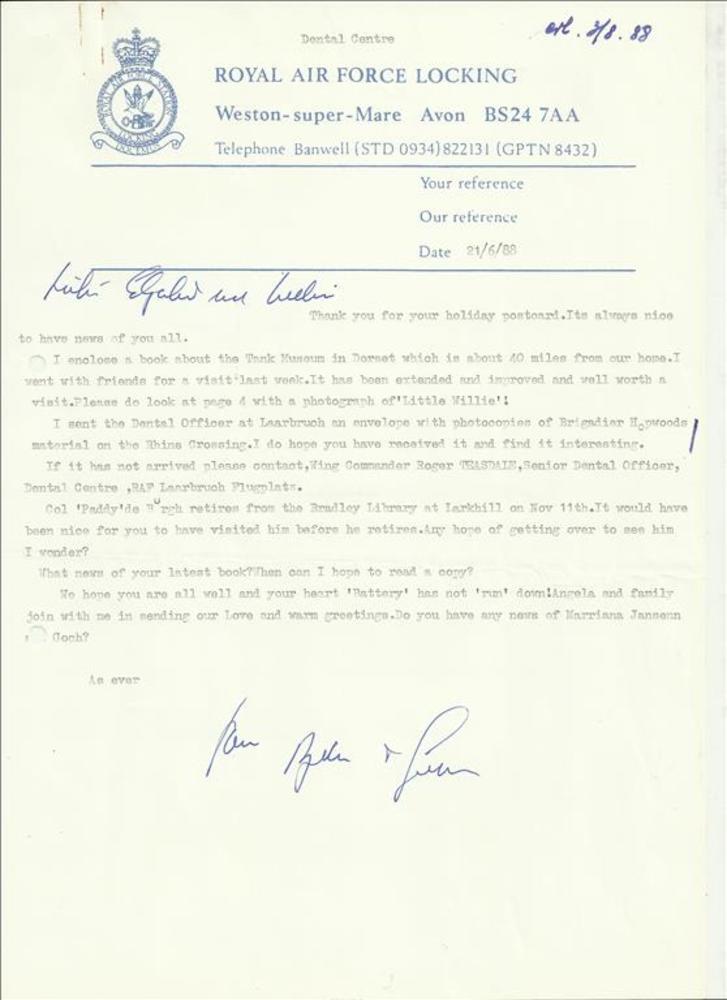 erl. 3/8. 88
Dental Centre
ROYAL AIR FORCE LOCKING
Weston-super-Mare Avon BS24 7AA
Telephone Banwell (STD 0934) 822131 (GPTN 8432)
ROYAL AIR FORCE STATION
LOCKING
DOCEMUS
Your reference
Our reference
Date 21/6/88
Thank you for your holiday postcard.Its always nice
to have news of you all.
I enclose a book about the Tank Museum in Dorset which is about 40 miles from our home.I
went with friends for a visit last week.It has been extended and improved and well worth a
visit.Please do look at page 4 with a photograph of'Little Willie'!
I sent the Dental Officer at Laarbruch an envelope with photocopies of Brigadier Hopwoods
material on the Rhine Crossing.I do hope you have received it and find it interesting.
If it has not arrived please contact,Wing Commander Roger TEASDALE,Senior Dental Officer,
Dental Centre ,RAF Laarbruch Flugplats.
Col 'Paddy'de Burgh retires from the Bradley Library at Larkhill on Nov 11th.It would have
been nice for you to have visited him before he retires.Any hope of getting over to see him
I wonder?
What news of your latest book?When can I hope to read a copy?
We hope you are all well and your heart 'Battery' has not 'run' down!Angela and family
join with me in sending our Love and warm greetings.Do you have any news of Marriana Jansenn
Goch?
As ever